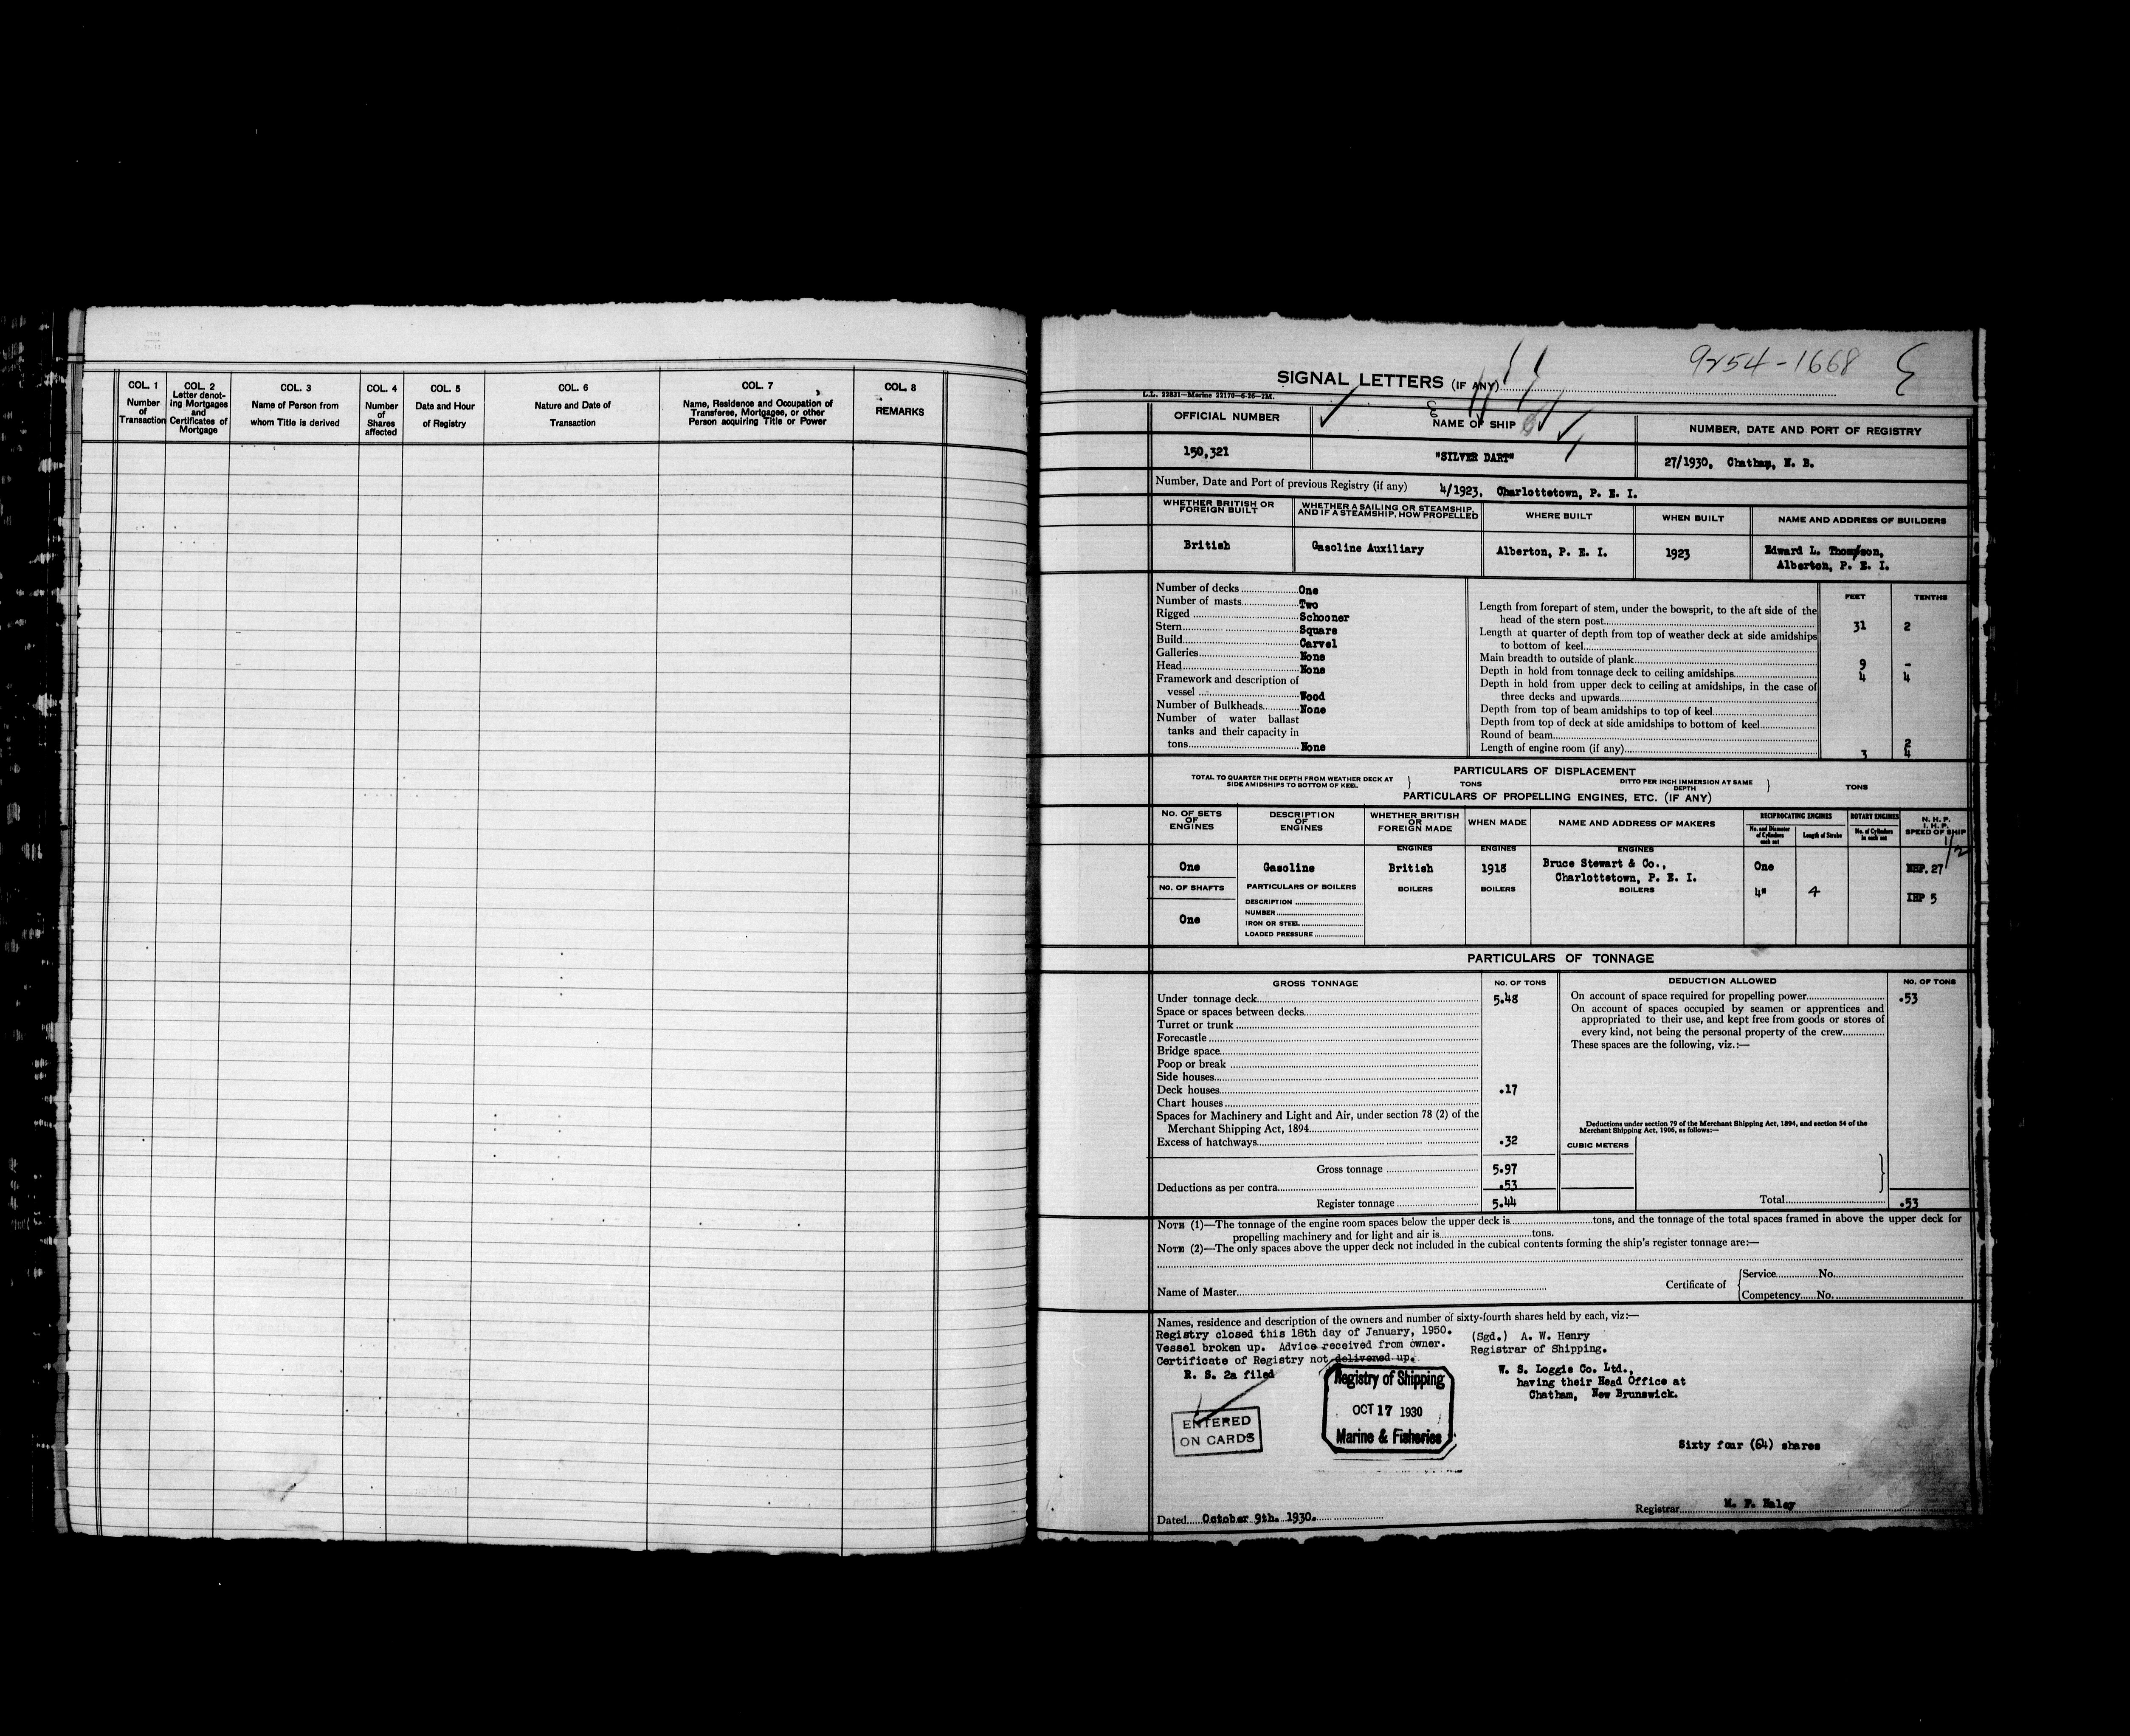 COL. 1
Number
of
Transaction
COL. 2
Letter denot-
ing Mortgages
and
Certificates of
Mortgage
COL. 3
Name of Person from
whom Title is derived
COL. 4
Number
of
Shares
affected
COL. 5
Date and Hour
of Registry
COL. 6
Nature and Date of
Transaction
COL. 7
Name, Residence and Occupation of
Transferee, Mortgagee, or other
Person acquiring Title or Power
COL. 8
REMARKS
9254-1668
SIGNAL LETTERS (IF ANY)
L.L. 22831—Marine 22170—6-26—2M.
OFFICIAL NUMBER
NAME OF SHIP
NUMBER, DATE AND PORT OF REGISTRY
150,321
"SILVER DART"
27/1930, Chatham, N. B.
Number, Date and Port of previous Registry (if any) 4/1923, Charlottetown, P. E. I.
WHETHER BRITISH OR
FOREIGN BUILT
WHETHER A SAILING OR STEAMSHIP,
AND IF A STEAMSHIP, HOW PROPELLED
WHERE BUILT
WHEN BUILT
NAME AND ADDRESS OF BUILDERS
British
Gasoline Auxiliary
Alberton, P. E. I.
1923
Edward L. Thompson,
Alberton, P. E. I.
Number of decks One
Number of masts Two
Rigged Schooner
Stern Square
Build Carvel
Galleries None
Head None
Framework and description of
vessel Wood
Number of Bulkheads None
Number of water ballast
tanks and their capacity in
tons None
FEET TENTHS
Length from forepart of stem, under the bowsprit, to the aft side of the
head of the stern post 31 2
Length at quarter of depth from top of weather deck at side amidships
to bottom of keel
Main breadth to outside of plank 9 -
Depth in hold from tonnage deck to ceiling amidships 4 4
Depth in hold from upper deck to ceiling at amidships, in the case of
three decks and upwards
Depth from top of beam amidships to top of keel
Depth from top of deck at side amidships to bottom of keel
Round of beam 2
Length of engine room (if any) 3 4
PARTICULARS OF DISPLACEMENT
TOTAL TO QUARTER THE DEPTH FROM WEATHER DECK AT
SIDE AMIDSHIPS TO BOTTOM OF KEEL
TONS
DITTO PER INCH IMMERSION AT SAME
DEPTH
TONS
PARTICULARS OF PROPELLING ENGINES, ETC. (IF ANY)
No. OF SETS
OF
ENGINES
DESCRIPTION
OF
ENGINES
WHETHER BRITISH
OR
FOREIGN MADE
WHEN MADE
NAME AND ADDRESS OF MAKERS
RECIPROCATING ENGINES
No. and Diameter
of Cylinders
each set
Length of Stroke
ROTARY ENGINES
No. of Cylinders
in each set
N. H. P.
I. H. P.
SPEED OF SHIP
ENGINES
ENGINES
ENGINES
One
Gasoline
British
1918
Bruce Stewart & Co.,
Charlottetown, P. E. I.
One
NHP. 27
1/2
NO. OF SHAFTS
PARTICULARS OF BOILERS
BOILERS
BOILERS
BOILERS
4"
4
IHP 5
One
DESCRIPTION
NUMBER
IRON OR STEEL
LOADED PRESSURE
PARTICULARS OF TONNAGE
GROSS TONNAGE
NO. OF TONS
Under tonnage deck 5.48
Space or spaces between decks
Turret or trunk
Forecastle
Bridge space
Poop or break
Side houses
Deck houses .17
Chart houses
Spaces for Machinery and Light and Air, under section 78 (2) of the
Merchant Shipping Act, 1894
Excess of hatchways .32
Gross tonnage 5.97
Deductions as per contra .53
Register tonnage 5.44
DEDUCTION ALLOWED
NO. OF TONS
On account of space required for propelling power .53
On account of spaces occupied by seamen or apprentices and
appropriated to their use, and kept free from goods or stores of
every kind, not being the personal property of the crew
These spaces are the following, viz.:—
Deductions under section 79 of the Merchant Shipping Act, 1894, and section 54 of the
Merchant Shipping Act, 1906, as follows:—
CUBIC METERS
Total .53
NOTE (1)—The tonnage of the engine room spaces below the upper deck is tons, and the tonnage of the total spaces framed in above the upper deck for
propelling machinery and for light and air is tons.
NOTE (2)—The only spaces above the upper deck not included in the cubical contents forming the ship's register tonnage are:—
Name of Master
Certificate of
Service No.
Competency No.
Names, residence and description of the owners and number of sixty-fourth shares held by each, viz:—
Registry closed this 18th day of January, 1950.
Vessel broken up. Advice received from owner.
Certificate of Registry not delivered up.
R. S. 2a filed
(Sgd.) A. W. Henry
Registrar of Shipping.
W. S. Loggie Co. Ltd.,
having their Head Office at
Chatham, New Brunswick.
ENTERED
ON CARDS
Registry of Shipping
OCT 17 1930
Marine & Fisheries
Sixty four (64) shares
Dated October 9th. 1930.
Registrar M. F. Haley